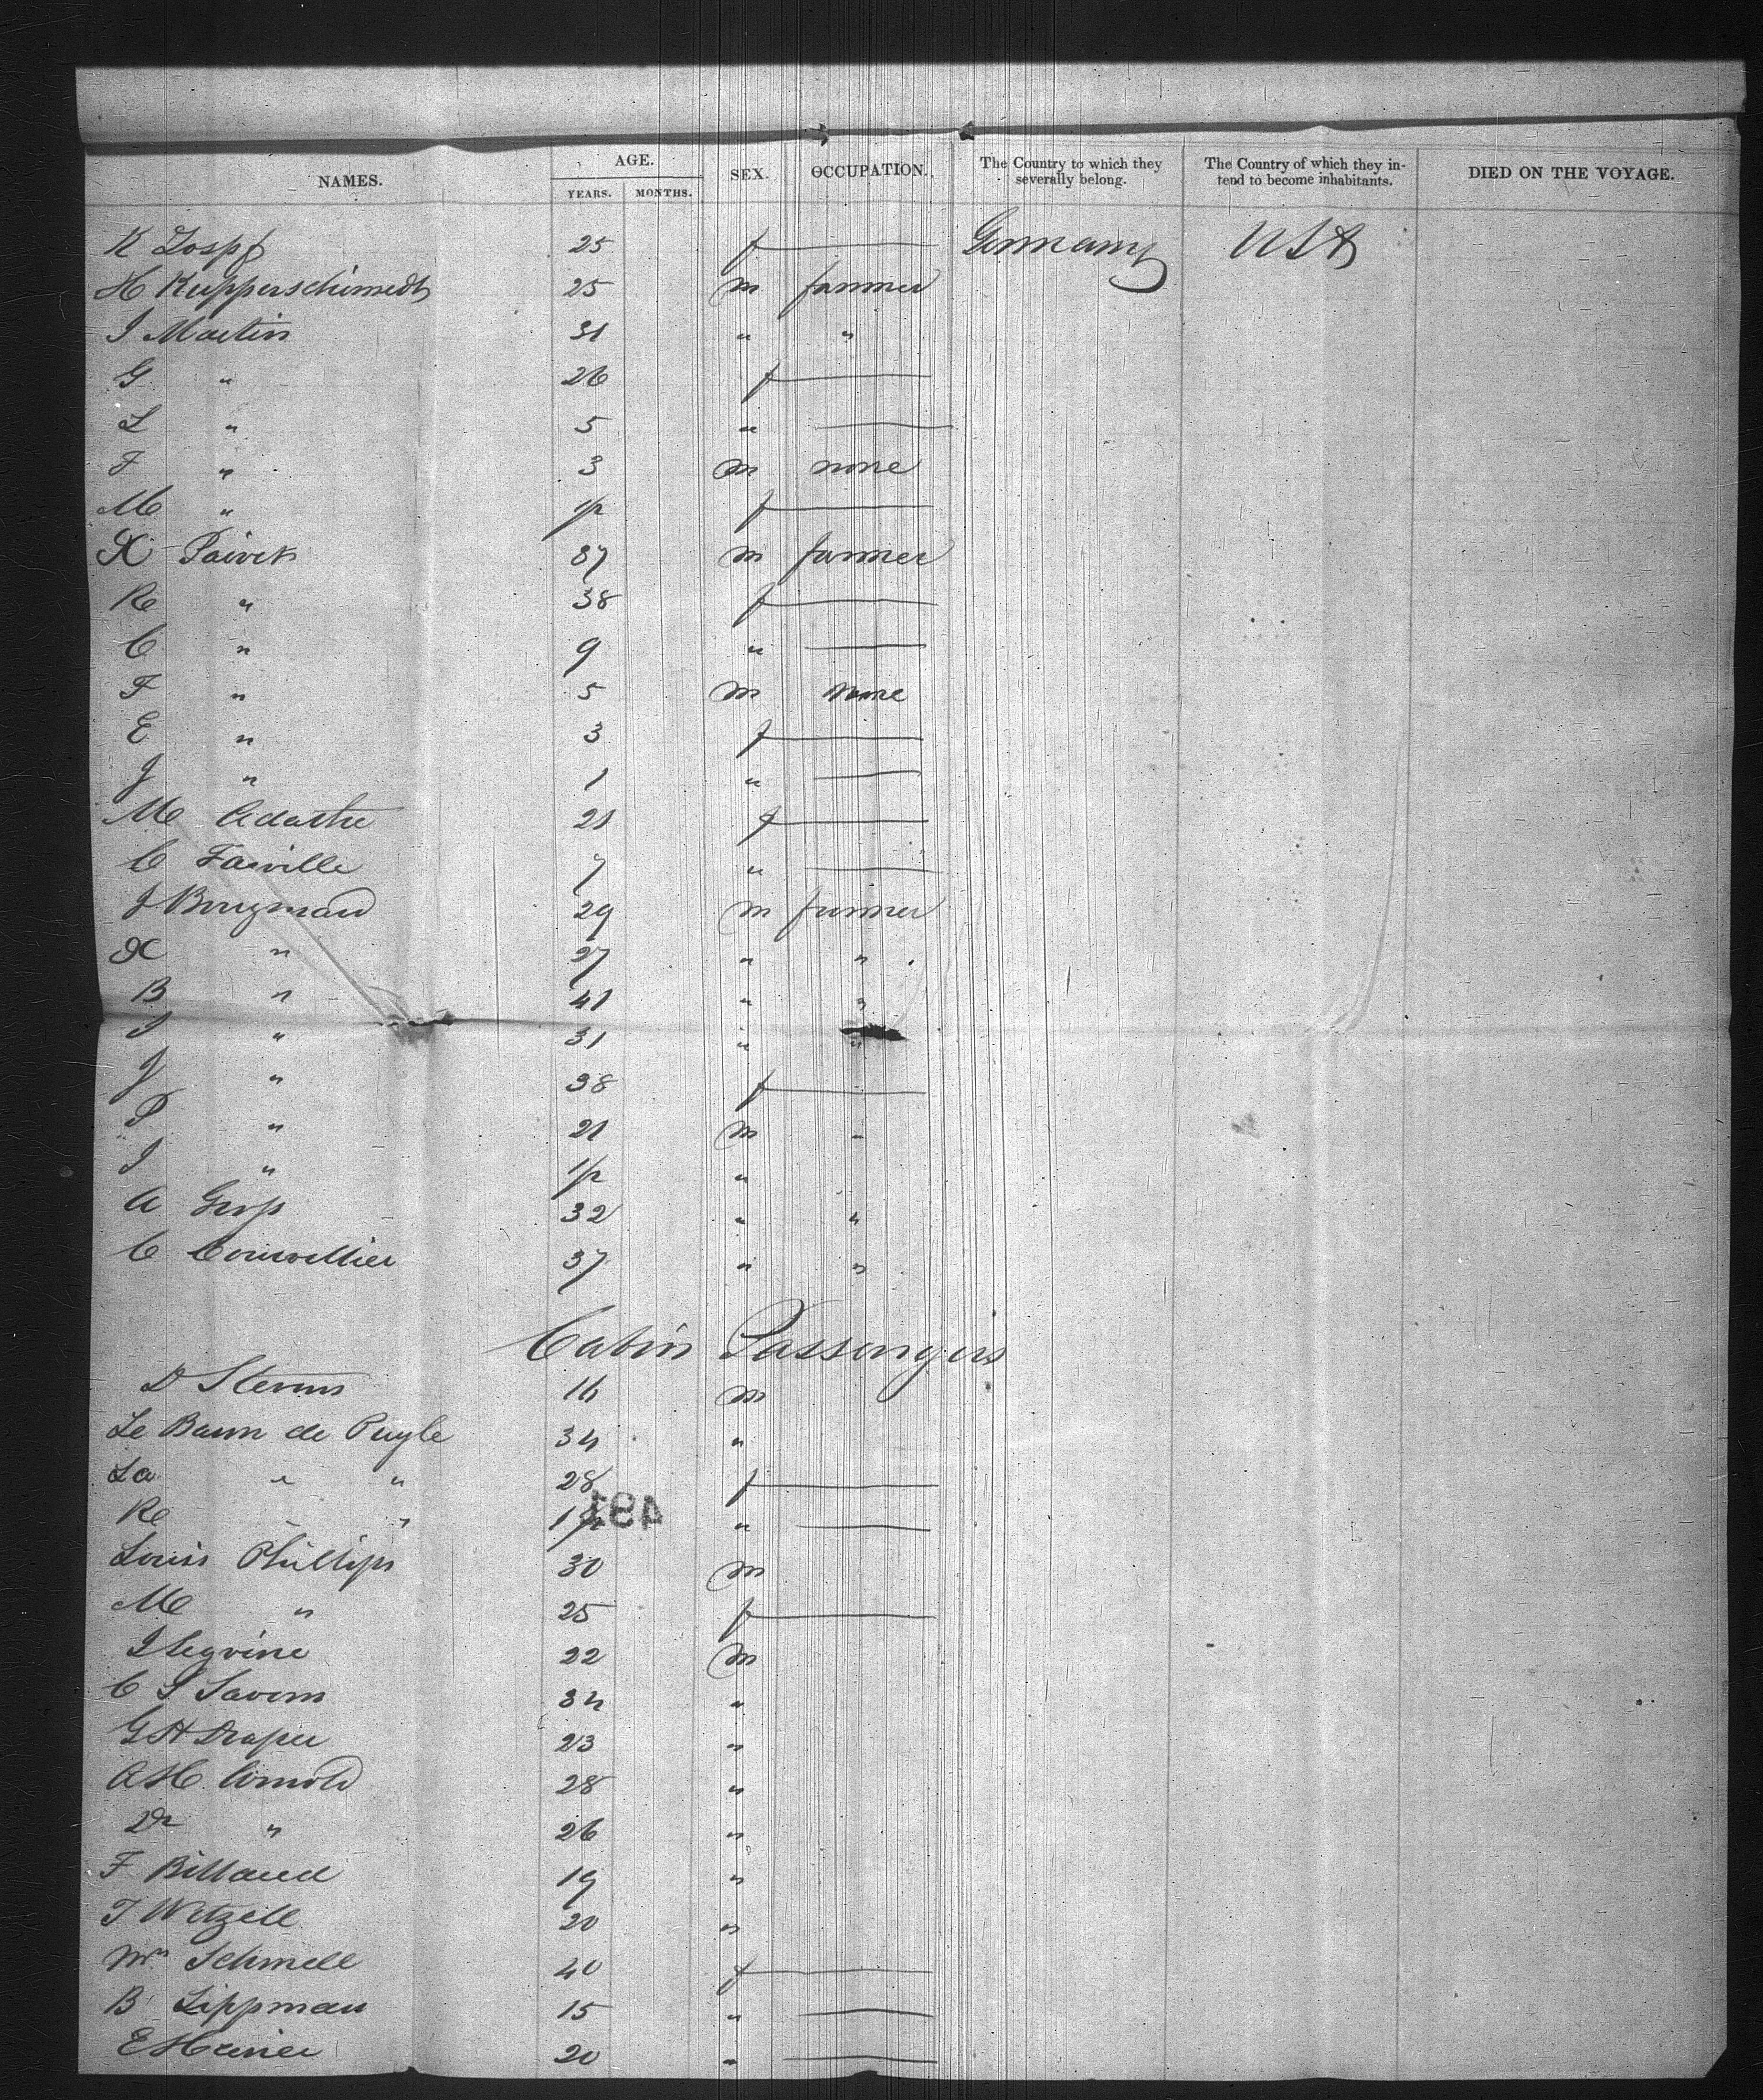 NAMES. AGE. YEARS. MONTHS. SEX. OCCUPATION. The Country to which they severally belong. The Country of which they intend to become inhabitants. DIED ON THE VOYAGE.
K Zospf 25 f — Germany USA
H Kupperschimedt 25 m farmer
J Martin 31 " "
G " 26 f —
L " 5 " —
F " 3 m none
M " 1/2 f —
X Paivet 37 m farmer
R " 38 f —
C " 9 " —
F " 5 m none
E " 3 f —
J " 1 " —
M Adathe 21 f —
C Faiville 7 " —
J Borgman 29 m farmer
X " 27 " "
B " 41 " "
I " 31 " "
J " 38 f —
P " 21 m "
I " 1/2 "
A Grop 32 " "
C Couvellier 37 " "
Cabin Passengers
D Sterns 16 m
Le Baron de Puyle 34 "
La " " 28 f —
R " " 1 1/2 " —
491
Louis Phillips 30 m
M " 25 f —
I Legvine 22 m
C S Savoms 34 "
G H Draper 23 "
A H Arnold 28 "
Dr " 26 "
F Billaud 19 "
T Wetzell 20 "
Mrs Schmell 40 f —
B Lippman 15 " —
E Heiner 20 " —